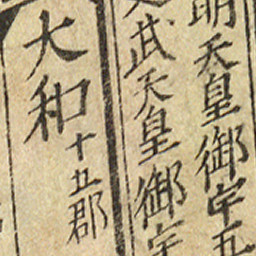 明天皇御宇五
武天皇御宇
大和十五郡